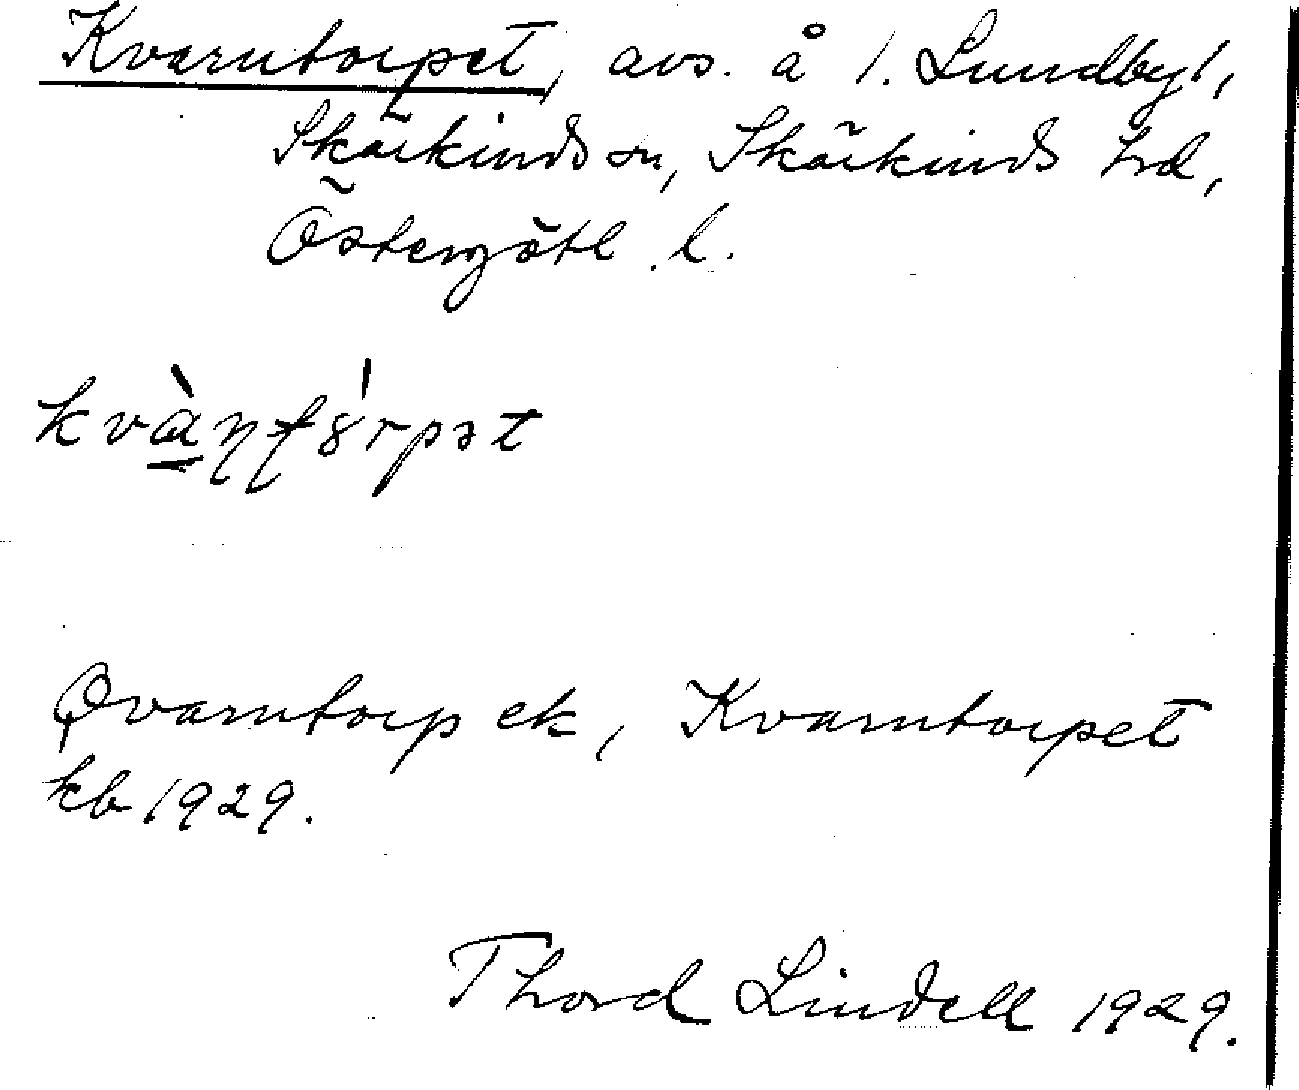 Kvarntorpet, avs. å 1. Lundby 1,
Skärkinds sn, Skärkinds hd,
Östergötl. l.
kvàɳʈ8́rpət
Qvarntorp ek, Kvarntorpet
kb 1929.
Thord Lindell 1929.